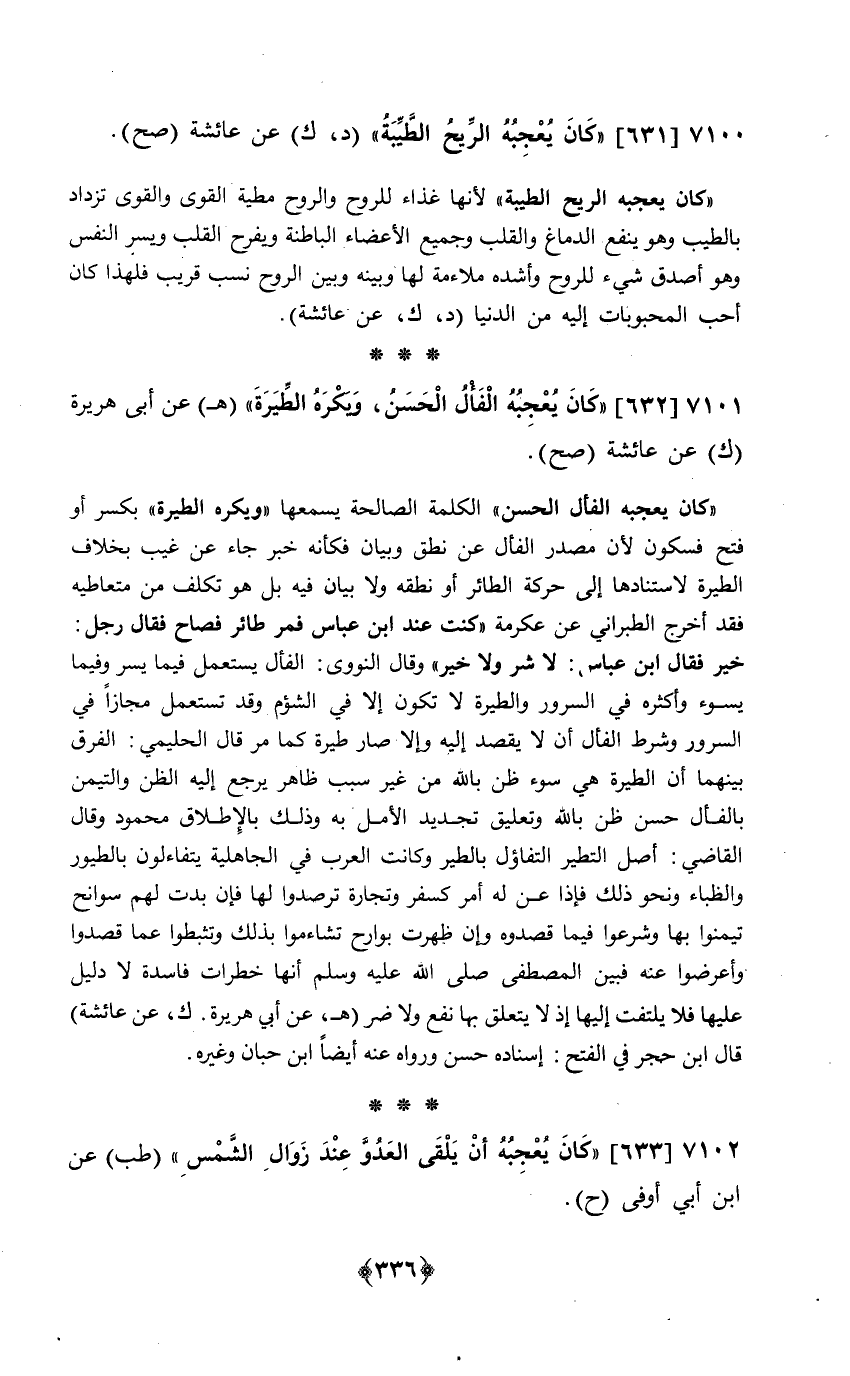 ٧١٠٠ [٦٣١] «كَانَ يُعْجِبُهُ الرِّيحُ الطَّيِّبَةُ» (د، ك) عن عائشة (صح).
«كان يعجبه الريح الطيبة» لأنها غذاء للروح والروح مطية القوى والقوى تزداد
بالطيب وهو ينفع الدماغ والقلب وجميع الأعضاء الباطنة ويفرح القلب ويسر النفس
وهو أصدق شيء للروح وأشده ملاءمة لها وبينه وبين الروح نسب قريب فلهذا كان
أحب المحبوبات إليه من الدنيا (د، ك، عن عائشة).
* * *
٧١٠١ [٦٣٢] «كَانَ يُعْجِبُهُ الْفَأْلُ الْحَسَنُ، وَيَكْرَهُ الطِّيَرَةَ» (هـ) عن أبى هريرة
(ك) عن عائشة (صح).
«كان يعجبه الفأل الحسن» الكلمة الصالحة يسمعها «ويكره الطيرة» بكسر أو
فتح فسكون لأن مصدر الفأل عن نطق وبيان فكأنه خبر جاء عن غيب بخلاف
الطيرة لاستنادها إلى حركة الطائر أو نطقه ولا بيان فيه بل هو تكلف من متعاطيه
فقد أخرج الطبراني عن عكرمة «كنت عند ابن عباس فمر طائر فصاح فقال رجل:
خير فقال ابن عباس: لا شر ولا خير» وقال النووى: الفأل يستعمل فيما يسر وفيما
يسوء وأكثره في السرور والطيرة لا تكون إلا في الشؤم وقد تستعمل مجازاً في
السرور وشرط الفأل أن لا يقصد إليه وإلا صار طيرة كما مر قال الحليمي: الفرق
بينهما أن الطيرة هي سوء ظن بالله من غير سبب ظاهر يرجع إليه الظن والتيمن
بالفأل حسن ظن بالله وتعليق تجديد الأمل به وذلك بالإطلاق محمود وقال
القاضي: أصل التطير التفاؤل بالطير وكانت العرب في الجاهلية يتفاءلون بالطيور
والظباء ونحو ذلك فإذا عن له أمر كسفر وتجارة ترصدوا لها فإن بدت لهم سوانح
تيمنوا بها وشرعوا فيما قصدوه وإن ظهرت بوارح تشاءموا بذلك وتثبطوا عما قصدوا
وأعرضوا عنه فبين المصطفى صلى الله عليه وسلم أنها خطرات فاسدة لا دليل
عليها فلا يلتفت إليها إذ لا يتعلق بها نفع ولا ضر (هـ، عن أبي هريرة. ك، عن عائشة)
قال ابن حجر في الفتح: إسناده حسن ورواه عنه أيضاً ابن حبان وغيره.
* * *
٧١٠٢ [٦٣٣] «كَانَ يُعْجِبُهُ أَنْ يَلْقَى العَدُوَّ عِنْدَ زَوَالِ الشَّمْسِ» (طب) عن
ابن أبي أوفى (ح).
﴿٣٣٦﴾